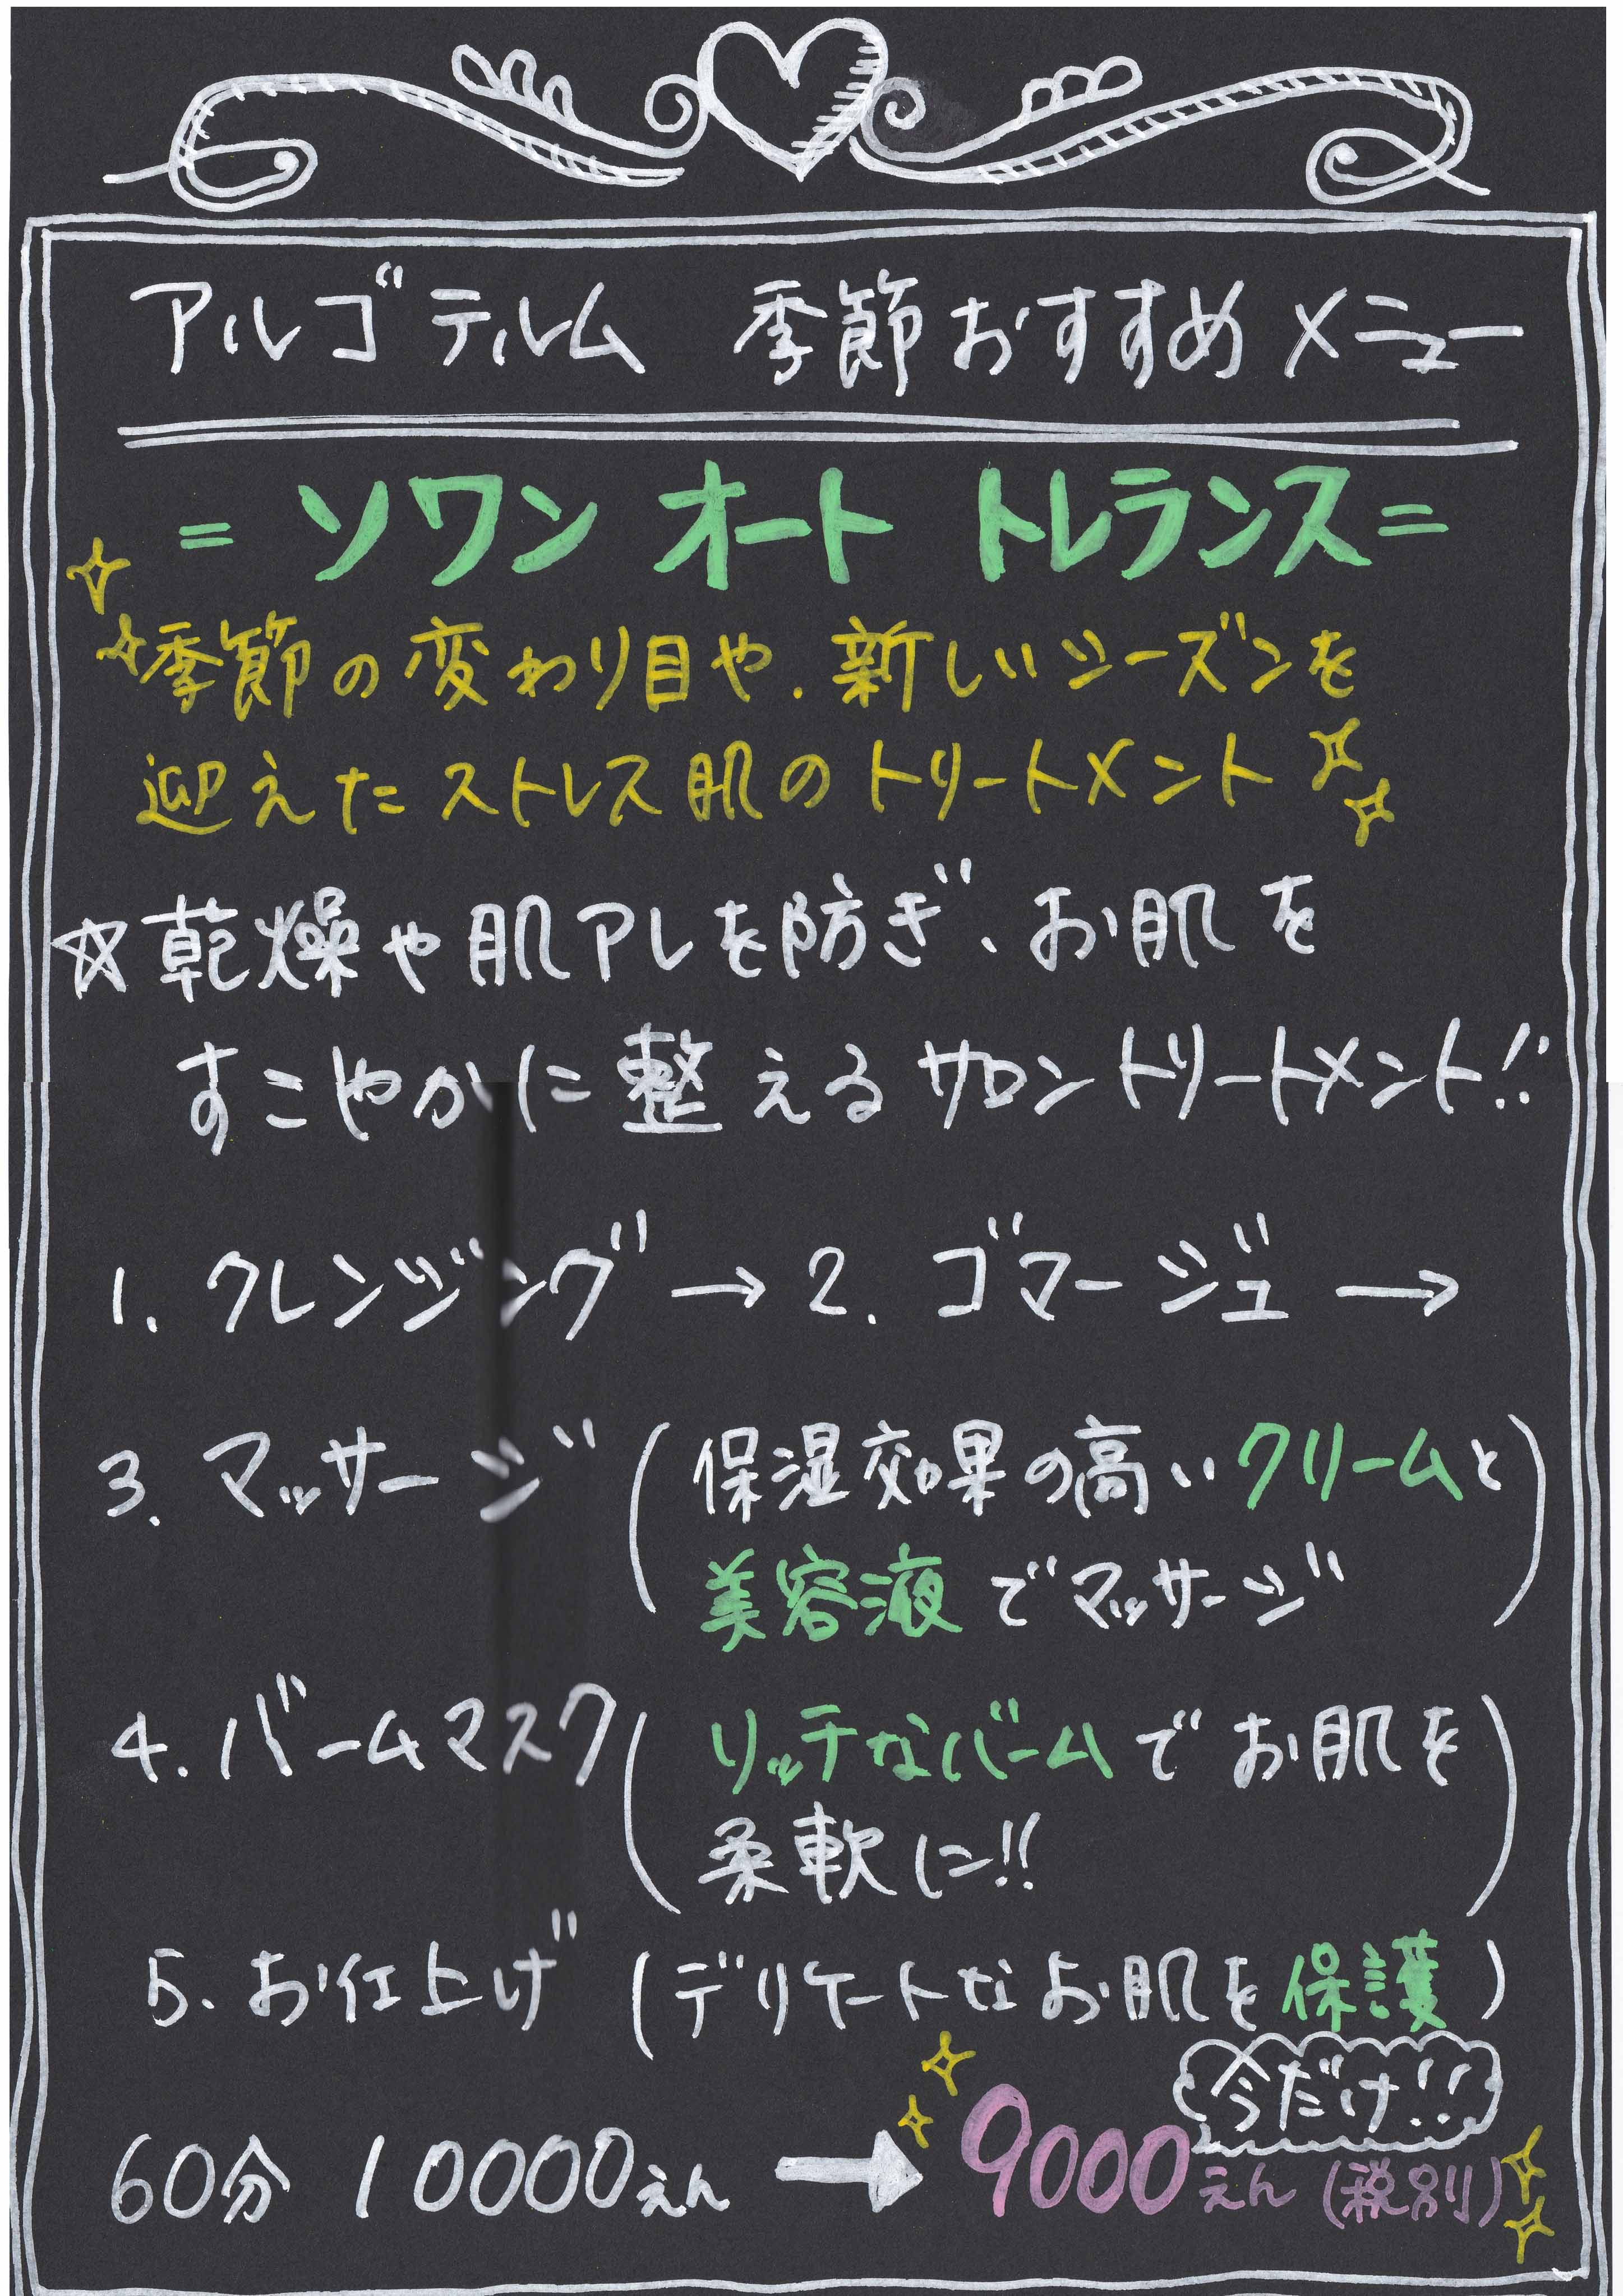 アルゴテルム　季節おすすめメニュー
= ソワン オート トレランス =
季節の変わり目や、新しいシーズンを
迎えたストレス肌のトリートメント
☆乾燥や肌アレを防ぎ、お肌を
すこやかに整えるサロントリートメント!!
1. クレンジング → 2. ゴマージュ →
3. マッサージ (保湿効果の高いクリームと
美容液でマッサージ)
4. バームマスク (リッチなバームでお肌を
柔軟に!!)
5. お仕上げ (デリケートなお肌を保護)
今だけ!!
60分 10000えん → 9000えん (税別)